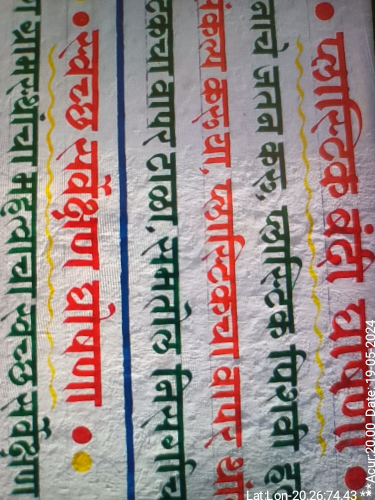 प्लास्टिक बंदी घोषणा
जतन करू, प्लास्टिक पिशवी
करूया, प्लास्टिकचा वापर
वापर टाळा, समतोल
स्वच्छ सर्वेक्षण घोषणा
महत्वाचा स्वच्छ सर्वेक्षण
Lat Lon-20.26:74.43 **
Acur:20.00 Date: 19-05-2024